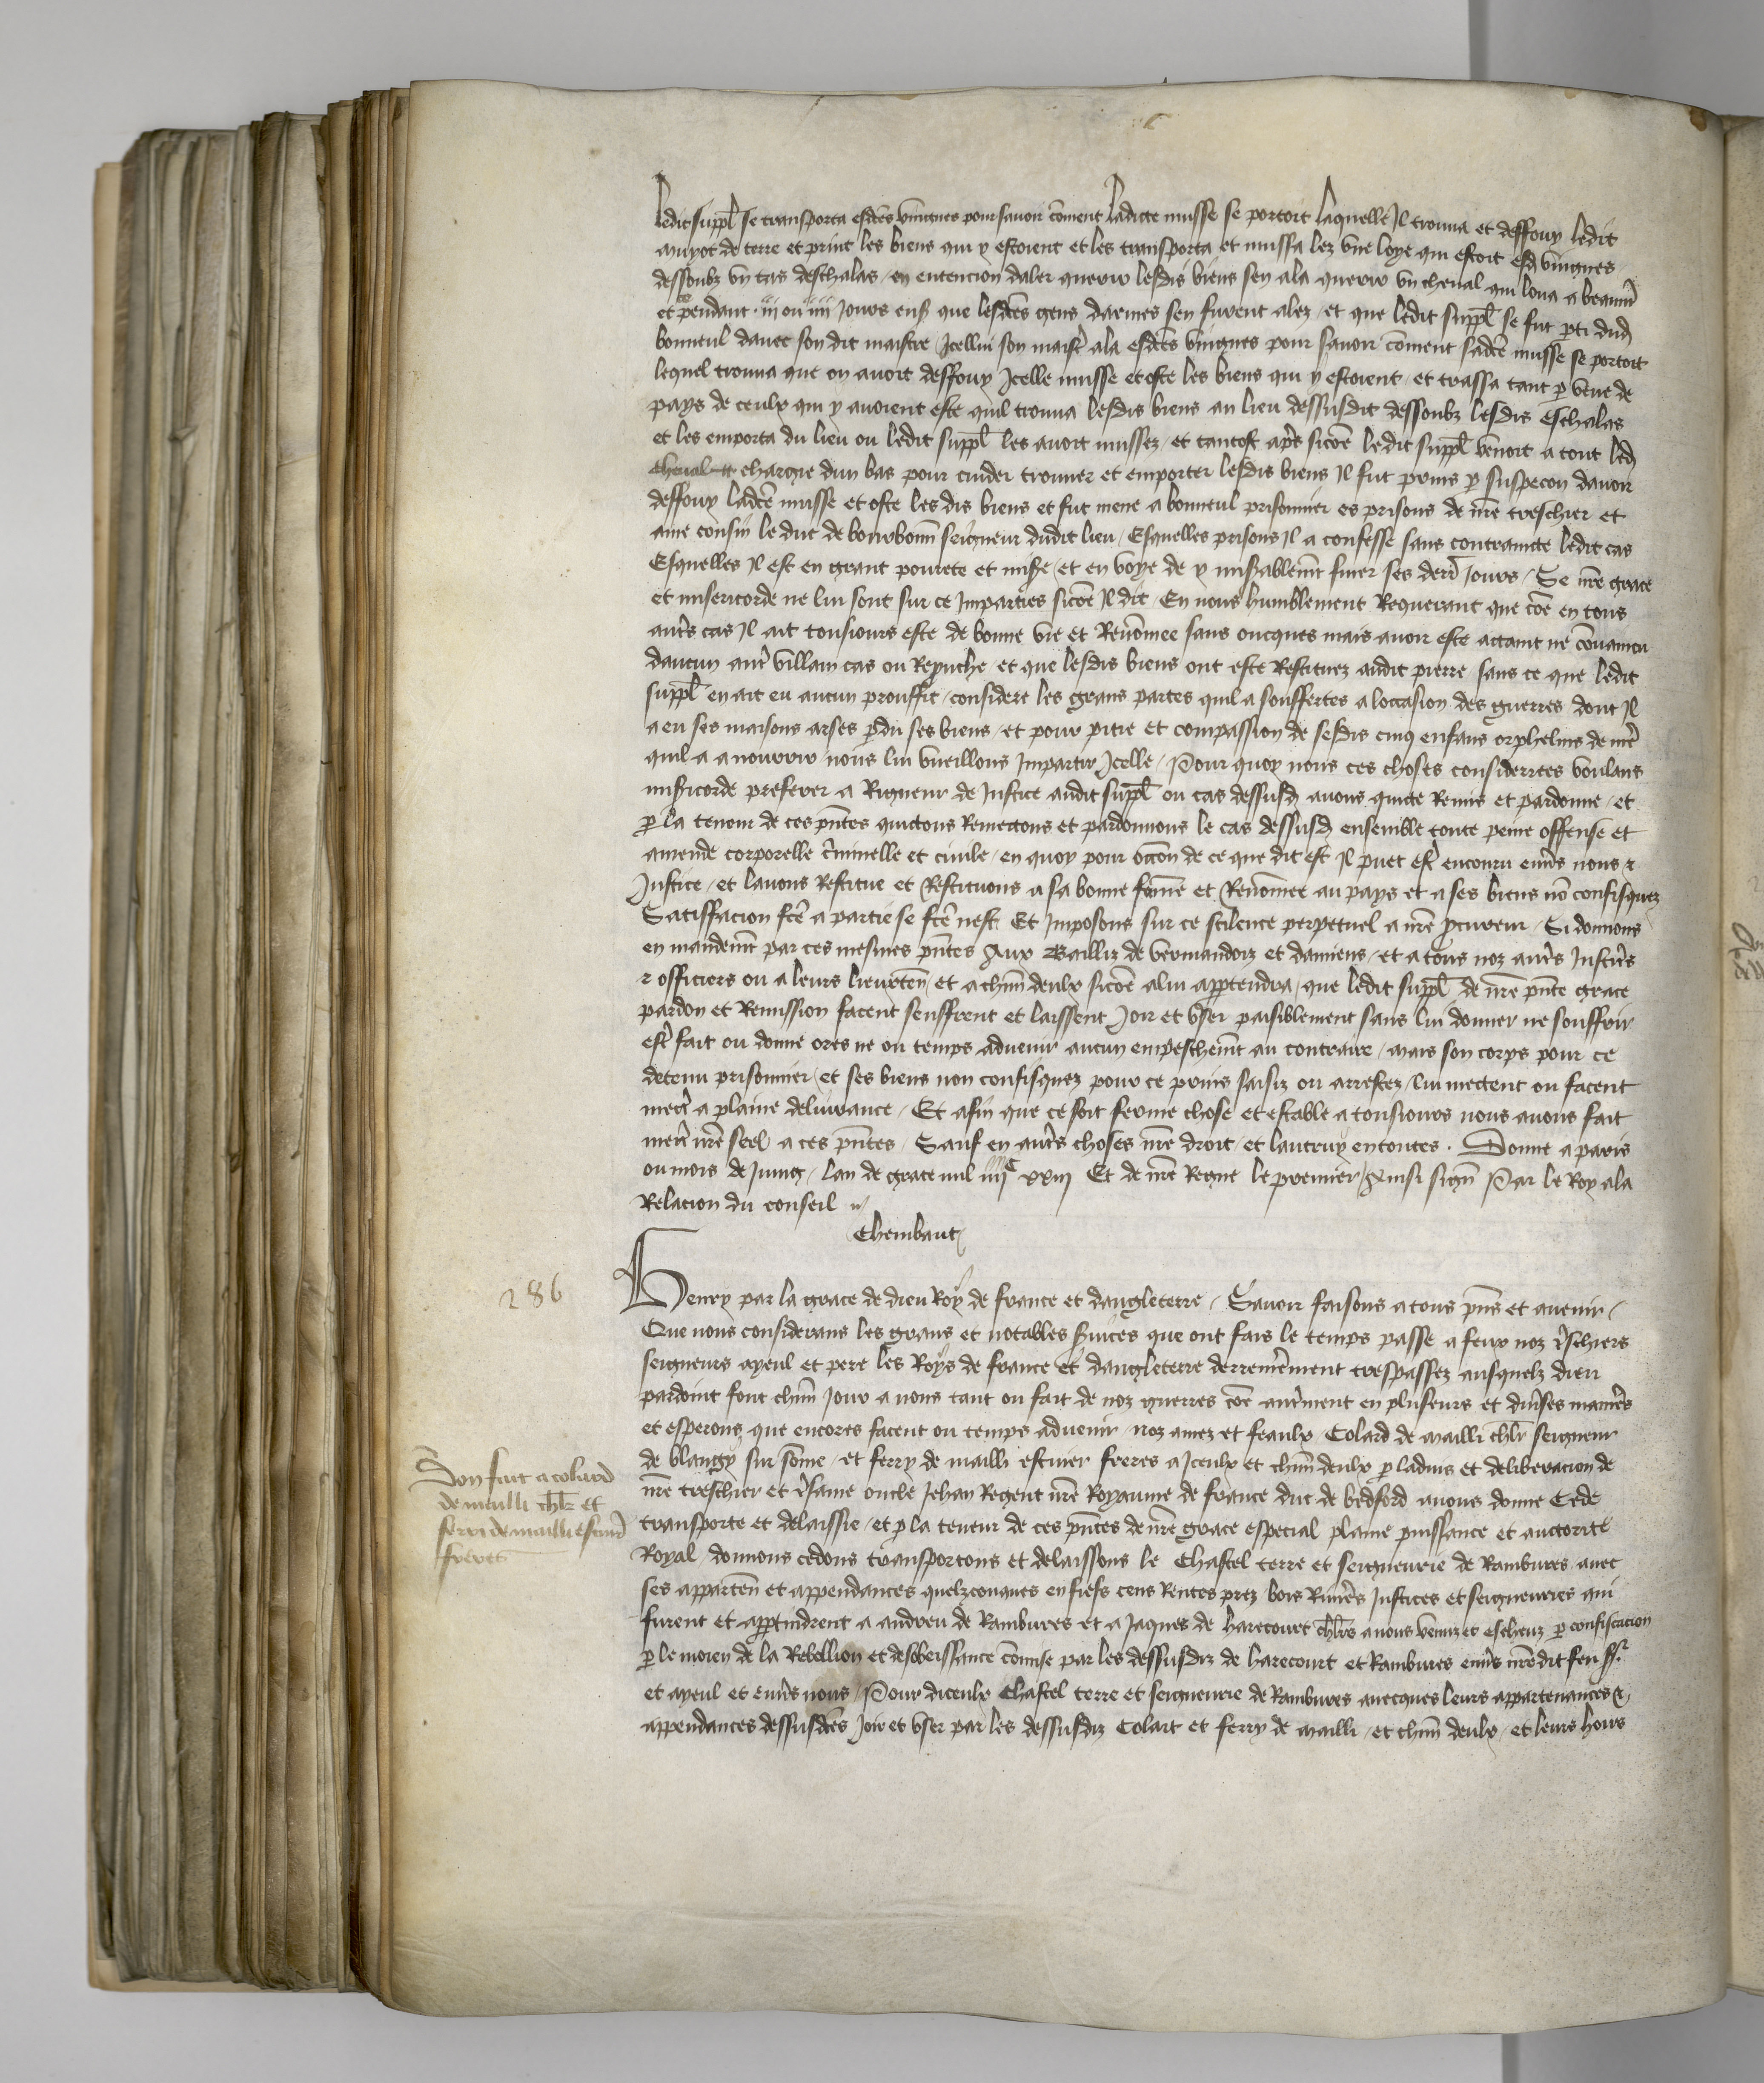 ledit suppl̄ se transporta esdc̄es vingnes pour savoir cōment ladicte musse se portoit laquelle Il trouva et deffouy ledit
muyot de terre et print les biens qui y estoient et les transporta et mussa lez une loge qui estoit esd̄ vingnes
dessoubz un tas deschalas / en entencion daler querir lesdis biens sen ala querir un cheval qui loua a beaum̄
et ce pendant iii ou iiii Jours ens̄ que lesdc̄es gens darmes sen furent alez / et que ledit suppl̄ se fut p̄ti dud̄
bonneul davec son dit maistre Icellui son maist̄ ala esdc̄es vingnes pour savoir cōment sadc̄e musse se portoit
lequel trouva que on avoit deffouy Icelle musse et oste les biens qui y estoient / et trassa tant p̄ veue de
pays de ceulx qui y avoient este quil trouva lesdis biens au lieu dessusdit dessoubz lesdis eschalas
et les emporta du lieu ou ledit suppl̄ les avoit mussez / et tantost ap̄s sicōe ledit suppl̄ venoit a tout led̄
cheval charge dun bas pour cuider trouver et emporter lesdis biens Il fut prins p̄ suspecon davoir
deffouy ladc̄e musse et oste les dis biens et fut mene a bonneul prisonnier es prisons de nr̄e treschier et
ame cousin le duc de bourbonn̄ seigneur dudit lieu / Esquelles prisons Il a confesse sans contrainte ledit cas
Esquelles Il est en grant povrete et mis̄e / et en voye de y mis̄ablem̄t finer ses derr̄ Jours / Se nr̄e grace
et misericorde ne lui sont sur ce Imparties sicōe Il dit / En nous humblement Requerant que cōe en tous
aut̄s cas Il ait tousiours este de bonne vie et Renōmee sans oncques mais avoir este actaint ne cōvaincu
daucun aut̄ villain cas ou Repruche et que lesdis biens ont este Restituez audit pierre sans ce que ledit
suppl̄ en ait eu aucun prouffit / considere les grans partes quil a souffertes a loccasion des guerres dont Il
a eu ses maisons arses p̄du ses biens / et pour pitie et compassion de sesdis cinq enfans orphelins de mē
quil a a nourrir nous lui vueillons Impartir Icelle / Pour quoy nous ces choses considerees voulans
mis̄icorde preferer a Rigueur de Justice audit suppl̄ ou cas dessusd̄ avons quicte Remis et pardonne / et
p̄ la teneur de ces pn̄tes quictons Remectons et pardonnons le cas dessusd̄ ensemble toute peine offense et
amende corporelle c̄minelle et civile / en quoy pour occ̄on de ce que dit est Il puet est̄ encouru env̄s nous &
Justice / et lavons Restitue et Restituons a sa bonne fame et Renōmee au pays et a ses biens nō confisquez
Satiffacion fc̄e a partie se fc̄e nest Et Imposons sur ce scilence perpetuel a nr̄e p̄cureur / Si donnons
en mandem̄t par ces mesmes pn̄tes Aux Bailliz de vermandoiz et damiens / et a tous noz aut̄s Justic̄s
& officiers ou a leurs lieuxten̄ et a chūn deulx sicōe a lui app̄tendra / que ledit suppl̄ de nr̄e pn̄te grace
pardon et Remission facent seuffrent et laissent Joir et user paisiblement sans lui donner ne souffrir
est̄ fait ou donne ores ne ou temps advenir aucun empeschem̄t au contraire / mais son corps pour ce
detenu prisonnier / et ses biens non confisquez pour ce prins saisiz ou arrestez lui mectent ou facent
mect̄ a plaine delivrance / Et afin que ce soit ferme chose et estable a tousiours nous avons fait
mect̄ nr̄e seel a ces pn̄tes / Sauf en aut̄s choses nr̄e droit / et lautruy en toutes . Donne a paris
ou mois de Juing / lan de grace mil iiiic xxiii Et de nr̄e Regne le premier / Ainsi sign̄ Par le Roy a la
Relacion du conseil
Chembaut
286
Henry par la grace de dieu Roy de france et dangleterre / Savoir faisons a tous pn̄s et avenir /
Que nous considerans les grans et notables s̄vices que ont fais le temps passe a feux noz t̄schiers
seigneurs ayeul et pere les Roys de france et dangleterre derrenierement trespassez ausquelz dieu
pardoint font chūn Jour a nous tant ou fait de noz guerres cōe aut̄ment en pluseurs et div̄ses manier̄s
et esperons que encores facent ou temps advenir noz amez et feaulx Colard de mailli chl̄r seigneur
de blangy sur sōme / et ferry de mailli escuier freres a Iceulx et chūn deulx p̄ ladvis et deliberacion de
nr̄e treschier et t̄same oncle Jehan Regent nr̄e Royaume de france duc de bedford avons donne Cede
transporte et delaissie / et p̄ la teneur de ces pn̄tes de nr̄e grace especial plaine puissance et auctorite
Royal / donnons cedons transportons et delaissons le Chastel terre et seigneurie de Rambures avec
ses apparten̄ et appendances quelzconques en fiefs cens Rentes prez bois Rivier̄s Justices et seigneuries qui
furent et app̄tindrent a andrieu de Rambures et a Jaques de harecourt chl̄rs a nous venuz et escheuz p̄ confiscacion
p̄ le moien de la Rebellion et desobeissance cōmise par les dessusdiz de harecourt et Rambures env̄s nr̄edit feu sr̄
et ayeul et env̄s nous / Pour diceulx Chastel terre et seigneurie de Rambures avecques leurs appartenances &
appendances dessusdc̄es Joir et user par les dessusdiz Colart et ferry de mailli / et chūn deulx / et leurs hoirs
Don fait a colard
de mailli chl̄r et
ferri de mailli escuier
freres